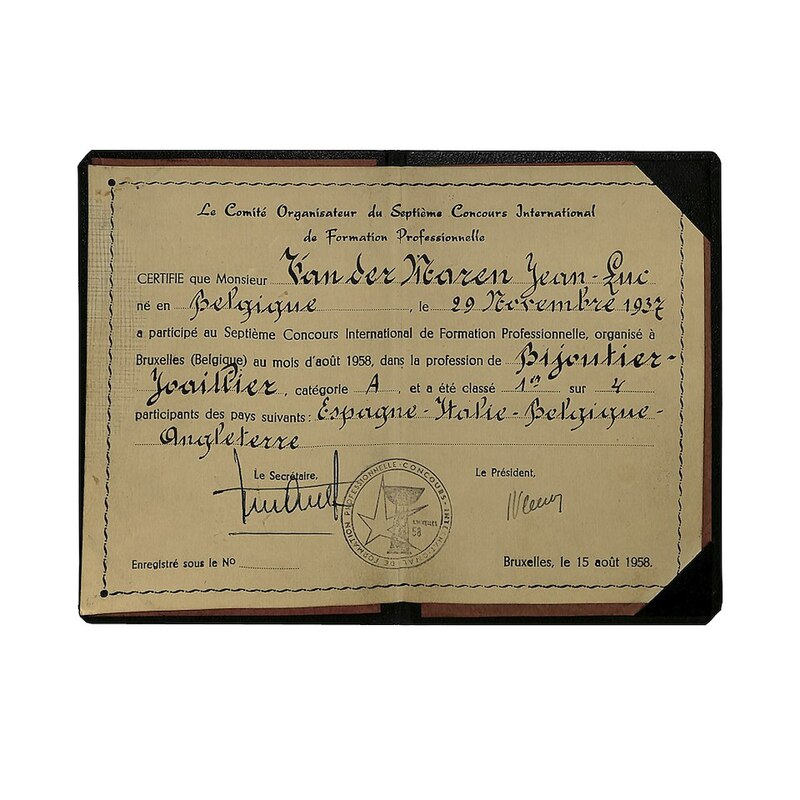 Le Comité Organisateur du Septième Concours International
de Formation Professionnelle
CERTIFIE que Monsieur Van der Maren Jean-Luc
né en Belgique, le 29 Novembre 1937
a participé au Septième Concours International de Formation Professionnelle, organisé à
Bruxelles (Belgique) au mois d'août 1958, dans la profession de Bijoutier-
Joaillier, catégorie A, et a été classé 1er sur 4
participants des pays suivants: Espagne-Italie-Belgique-
Angleterre
Le Secrétaire,
Le Président,
CONCOURS INTERNATIONAL DE FORMATION PROFESSIONNELLE
BRUXELLES
58
Enregistré sous le No
Bruxelles, le 15 août 1958.